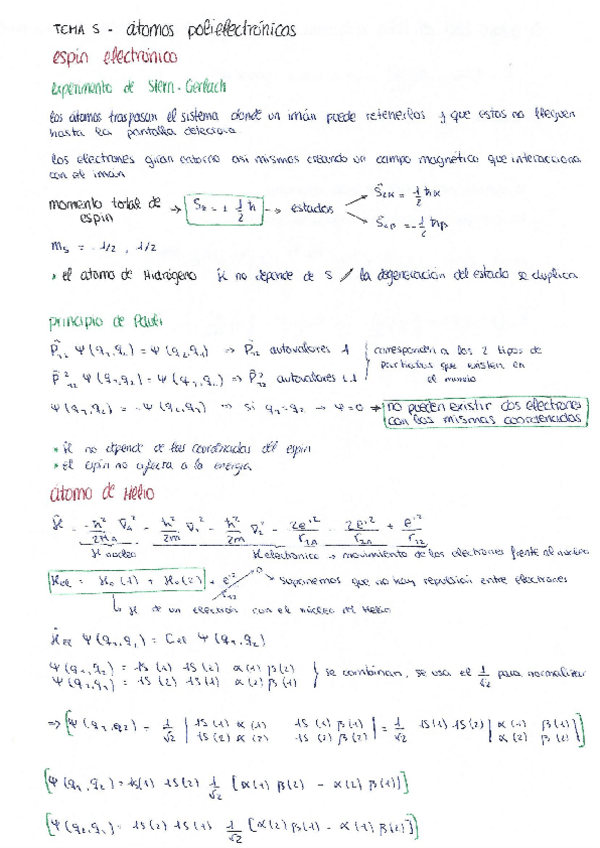 TEMA 5 - átomos polielectrónicos
espín electrónico
experimento de Stern-Gerlach
los átomos traspasan el sistema donde un imán puede retenerlos y que estos no lleguen
hasta la pantalla detectora
los electrones giran entorno asi mismos creando un campo magnético que interacciona
con el imán
momento total de espín → → estados
ms = -1/2, 1/2
el átomo de Hidrógeno Ĥ no depende de S / la degeneración del estado se duplica
principio de Pauli
P̂12 Ψ(q1,q2) = Ψ(q2,q1) ⇒ P̂12 autovalores
corresponden a los 2 tipos de
partículas que existen en
el mundo
P̂²12 autovalores
Ψ(q1,q2) = -Ψ(q2,q1) ⇒ si q1=q2 → Ψ=0 → no pueden existir dos electrones
con las mismas coordenadas
Ĥ no depende de las coordenadas del espín
El espín no afecta a la energía
átomo de Helio
Ĥ núcleo Ĥ electrónico → movimiento de los electrones frente al núcleo
suponemos que no hay repulsión entre electrones
Ĥ de un electrón con el núcleo del Helio
Ψ(q1,q2) = 1s(1) 1s(2) α(1) β(2)
Ψ(q2,q1) = 1s(2) 1s(1) α(2) β(1)
se combinan, se usa el 1/√2 para normalizar
⇒ [Ψ(q1,q2) = 1/√2 | 1s(1) α(1) 1s(1) β(1) | = 1/√2 1s(1) 1s(2) | α(1) β(1) |]
| 1s(2) α(2) 1s(2) β(2) | | α(2) β(2) |
[Ψ(q1,q2) = 1s(1) 1s(2) 1/√2 [α(1) β(2) - α(2) β(1)]]
[Ψ(q2,q1) = 1s(2) 1s(1) 1/√2 [α(2) β(1) - α(1) β(2)]]